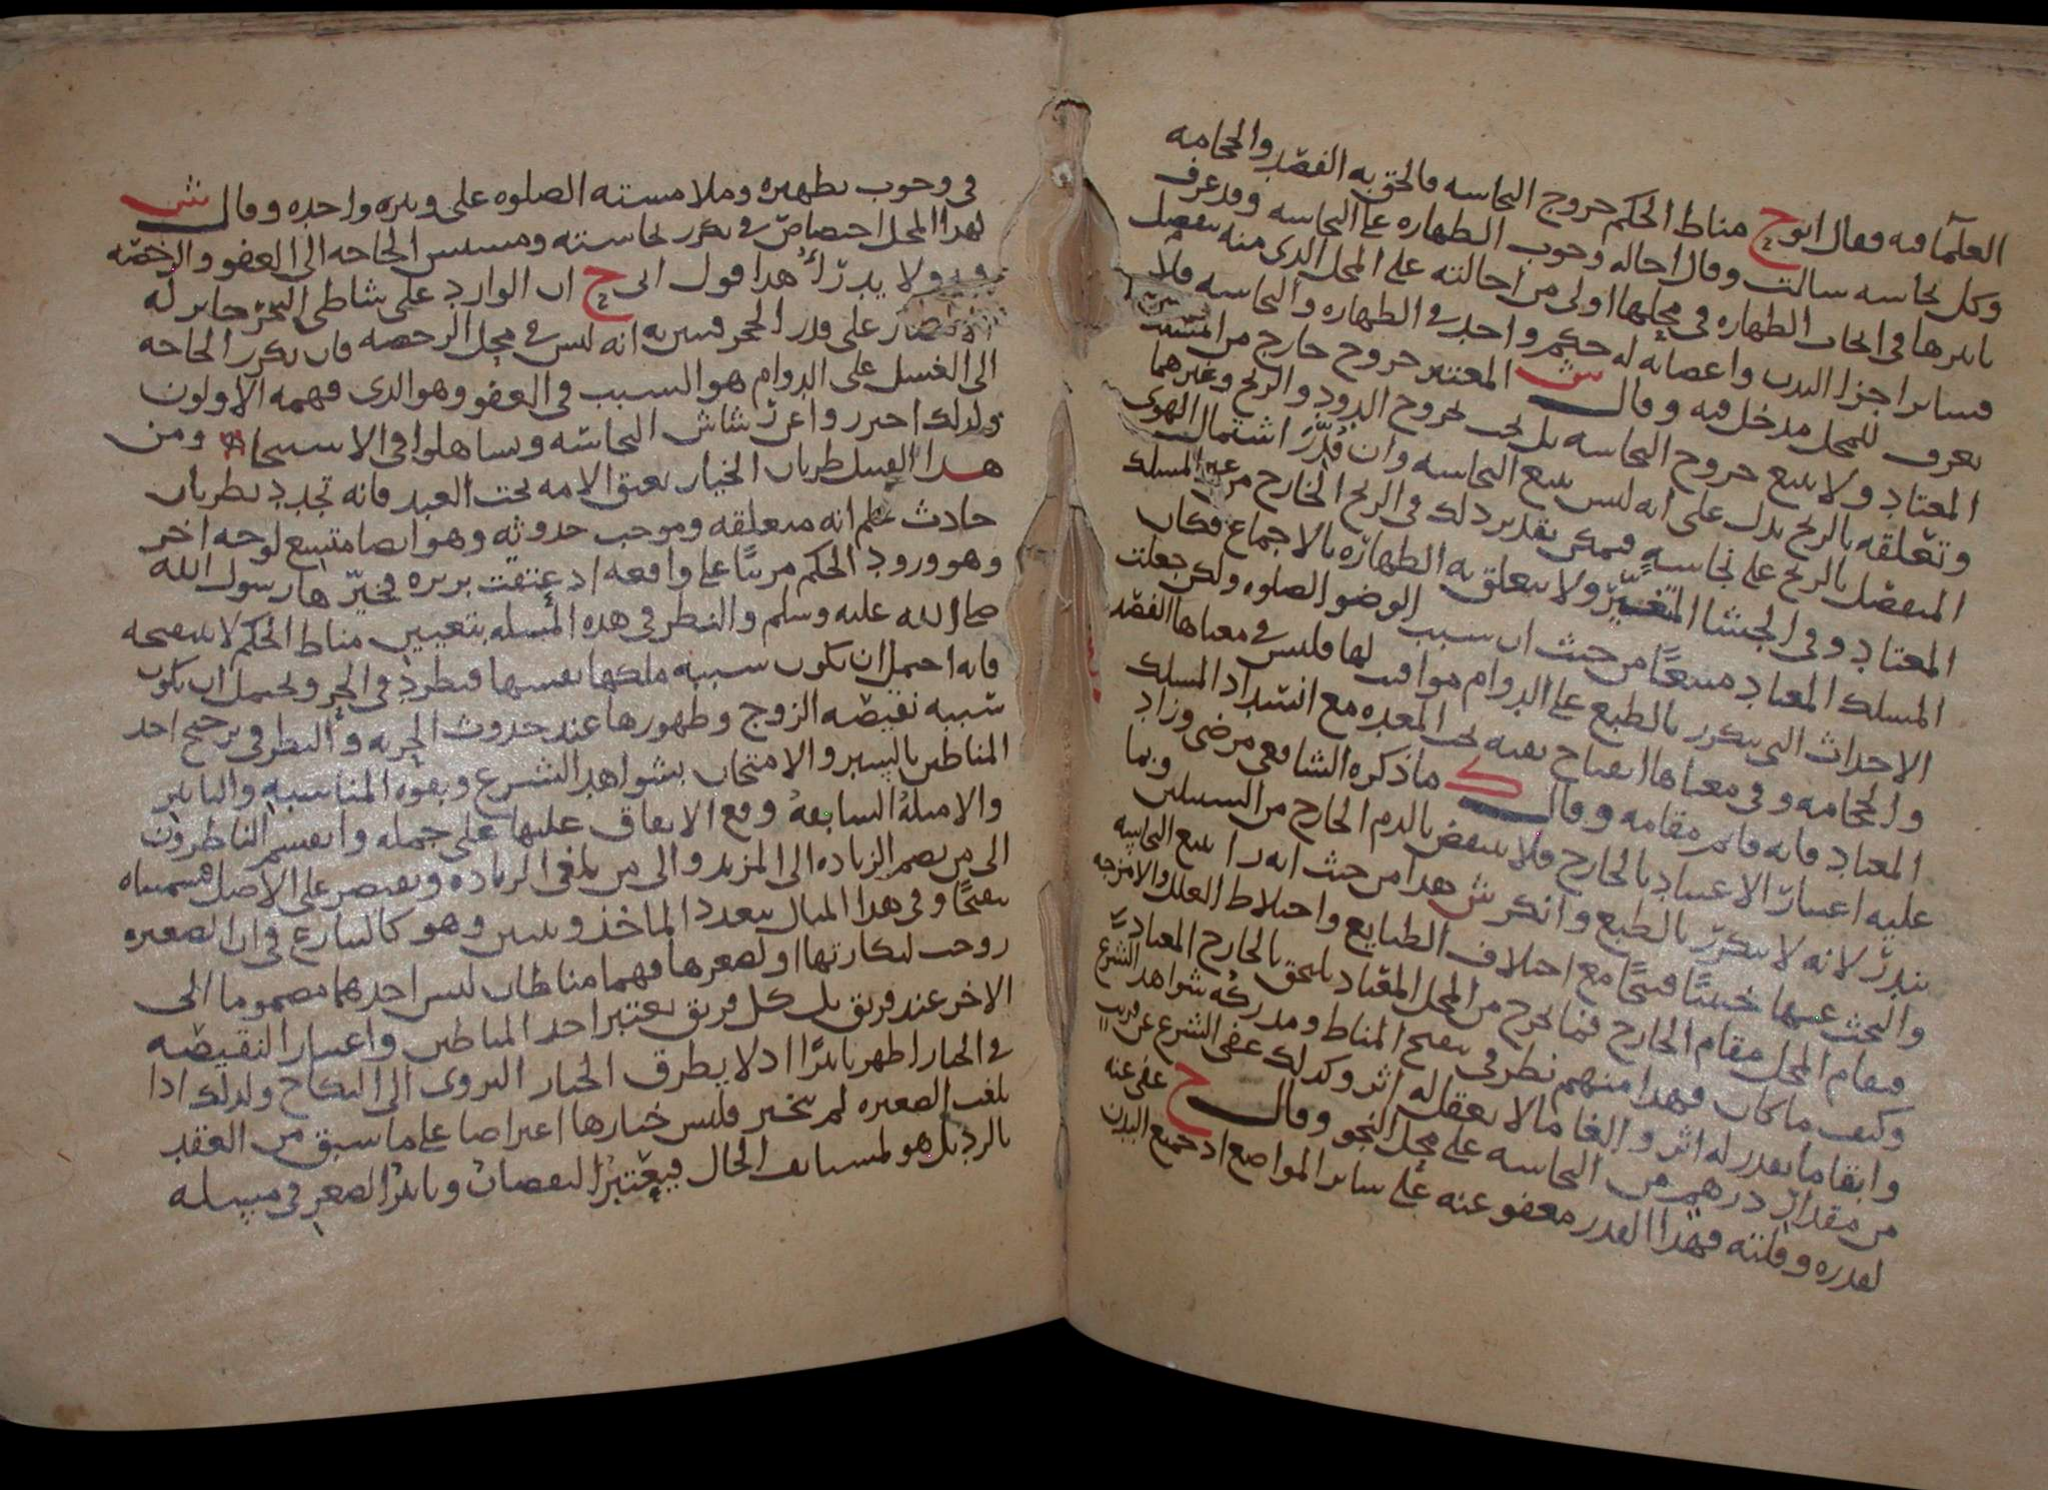 العلما فيه فقال ابو ح مناط الحكم خروج النجاسه فالحق به الفصد والحجامه
وكل نجاسه سالت وقال احاله وجوب الطهاره على النجاسه وقد عرف
تاثيرها فى ايجاب الطهاره فى محلها اولى من احالته على المحل الذى منه ينفصل
فساير اجزا البدن واعضايه له حكم واحد فى الطهاره والنجاسه فلا
يعرف للمحل مدخل فيه وقال ش المعتبر خروج خارج من المسلك
المعتاد ولا يتبع خروج النجاسه بل يجب بخروج الدود والريح وغيرهما
وتعلقه بالريح يدل على انه ليس يتبع النجاسه وان قدر اشتمال الهوى
المنفصل بالريح على نجاسه فيمكن تقدير ذلك فى الريح الخارج من غير المسلك
المعتاد وفى الجشا المتغير ولا يتعلق به الطهاره بالاجماع فكان
المسلك المعتاد متبعا من حيث ان سبب الوضو الصلوه ولكن جعلت
الاحداث التى يتكرر بالطبع على الدوام مواقيت لها فليس فى معناها الفصد
والحجامه وفى معناها انفتاح ثقبه تحت المعده مع انسداد المسلك
المعتاد فانه قايم مقامه وقال ك ما ذكره الشافعى مرضى وزاد
عليه اعتبار الاعتياد بالخارج فلا ينتقض بالدم الخارج من السبيلين وبما
يندر لانه لا يتكرر بالطبع وانكر ش هذا من حيث انه را تتبع النجاسه
والبحث عنها خبيثا قبيحا مع اختلاف الطبايع واختلاط العلل والامزجه
فيقام المحل مقام الخارج فما يخرج من المحل المعتاد يلتحق بالخارج المعتاد
وكيف ما كان فهذا منهم نظر فى تنقيح المناط ومدركه شواهد الشرع
وابقا ما يقدر له اثر والغا ما لا يعقل له اثر وكذلك عفى الشرع عن قريب
من مقدار درهم من النجاسه على محل النجو وقال ح عفى عنه
لقدره وقلته فهذا القدر معفو عنه على ساير المواضع اذ جميع البدن
فى وجوب تطهيره وملامسته الصلوه على وتيره واحده وقال ش
لهذا المحل اختصاص فى تكرر نجاسته ومسيس الحاجه الى العفو والرخصه
ولا يدرا هذا قول ابى ح ان الوارد على شاطى البحر جايز له
الاقتصار على قدر الحجر فتبين به انه ليس فى محل الرخصه فان تكرر الحاجه
الى الغسل على الدوام هو السبب فى العفو وهو الذى فهمه الاولون
ولذلك احترزوا عن رشاش النجاسه وتساهلوا فى الاستنجا ومن
هذا القبيل طريان الخيار بعتق الامه تحت العبد فانه تجدد بطريان
حادث علم انه متعلقه وموجب حدوثه وهو ايضا متبع لوجه اخر
وهو ورود الحكم مرتبا على واقعه اذ عتقت بريره فخيرها رسول الله
صلى الله عليه وسلم والنظر فى هذه المسله بتعيين مناط الحكم لا بتنقيحه
فانه احتمل ان تكون سببه ملكها نفسها فيطرد فى الحر ويحتمل ان يكون
سببه نقيصه الزوج وظهورها عند حدوث الحريه والنظر فى ترجيح احد
المناطين بالسبر والامتحان بشواهد الشرع وبقوه المناسبه والتاثير
والامثله السابقه وقع الاتفاق عليها على جمله وانقسم الناظرون
الى من يضم الزياده الى المزيد والى من يلغى الزياده ويقتصر على الاصل فسميناه
تنقيحا وفى هذا المثال تتعدد الماخذ ويتبين وهو كالتنازع فى ان الصغيره
زوجت لبكارتها او لصغرها فهما مناطان ليس احدهما مضموما الى
الاخر عند فريق بل كل فريق يعتبر احد المناطين واعتبار النقيصه
فى الخيار اظهر تاثيرا اذ لا يطرق الخيار التروى الى النكاح ولذلك اذا
بلغت الصغيره لم تخير فليس خيارها اعتراضا على ما سبق من العقد
بالرد بل هو لمستانف الحال فيعتبر النقصان وتاثير الصغر فى مسله